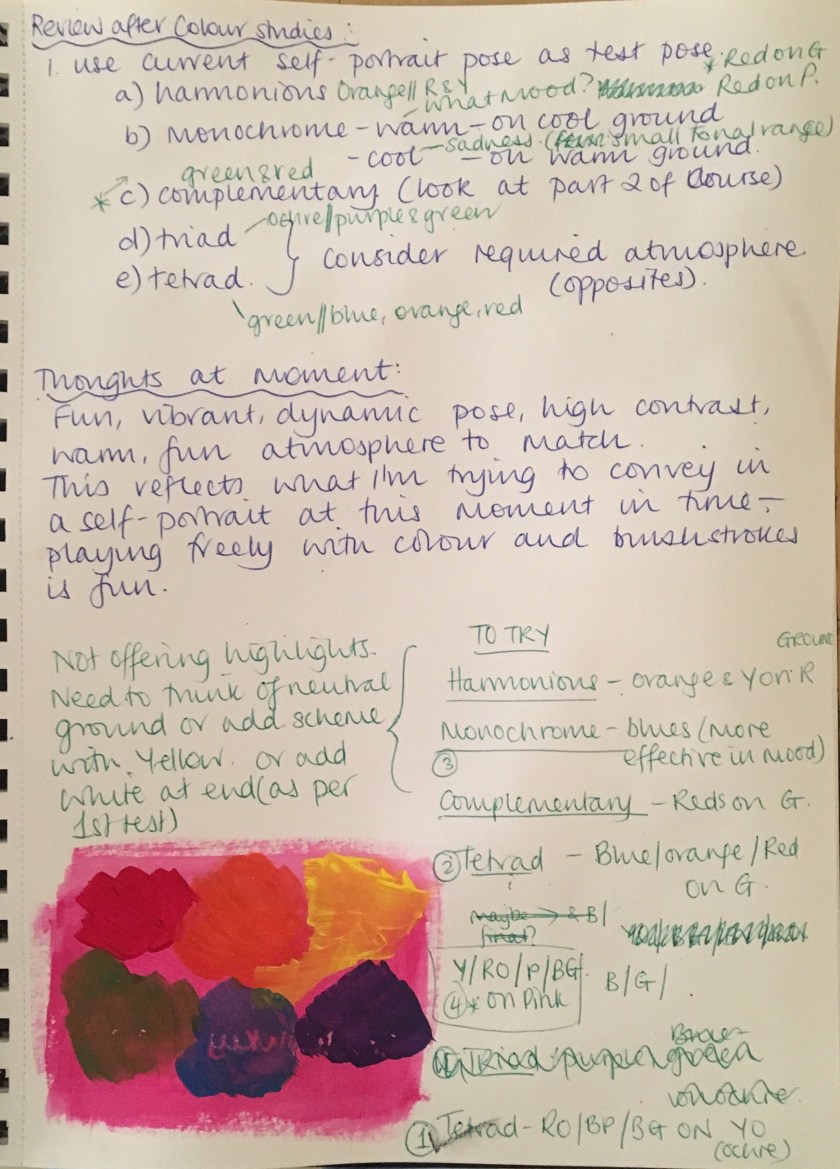 Review after Colour studies:
1. use current self-portrait pose as test pose.
* Red on G
a) harmonions Orange// R & Y
what mood?
Red on P.
b) monochrome - warm - on cool ground
- cool - on warm ground.
sadness. (small tonal range)
green & red
* c) complementary (look at part 2 of Course)
d) triad
ochre//purple & green
e) tetrad.
consider required atmosphere.
(opposites).
green//blue, orange, red
Thoughts at moment:
Fun, vibrant, dynamic pose, high contrast,
warm, fun atmosphere to match.
This reflects what I'm trying to convey in
a self-portrait at this moment in time -
playing freely with colour and brushstrokes
is fun.
Not offering highlights.
Need to think of neutral
ground or add scheme
with Yellow. or add
white at end (as per
1st test)
TO TRY
GROUND
Harmonious - orange & Y on R
Monochrome - blues (more
③ effective in mood)
Complementary - Reds on G.
② Tetrad - Blue/orange/Red
on G.
maybe → & B/
final?
Y/RO/P/BG
④ * on Pink
B/G/
Triad purple green
① Tetrad - RO/BP/BG ON YO
(ochre)